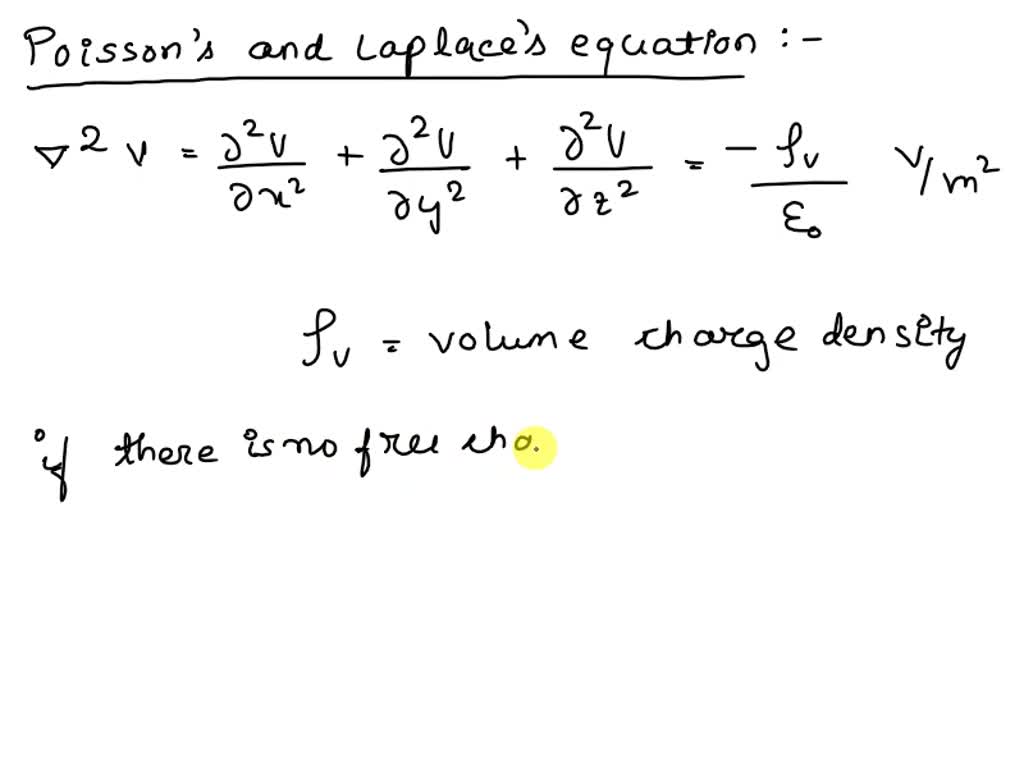 Poisson's and Laplace's equation :-
∇² V = ∂²V/∂x² + ∂²V/∂y² + ∂²V/∂z² = -ρv/ε₀ V/m²
ρv = volume charge density
if there is no free cha